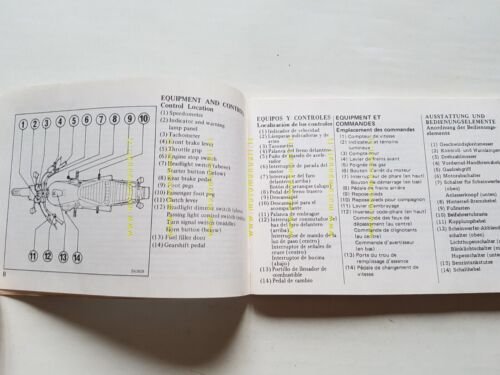 1 2 3 4 5 6 7 8 9 10
11 12 13 14
8
EQUIPMENT AND CONTROL
Control Location
(1) Speedometer
(2) Indicator and warning
lamp panel
(3) Tachometer
(4) Front brake lever
(5) Throttle grip
(6) Engine stop switch
(7) Headlight switch (above)
Starter button (below)
(8) Rear brake pedal
(9) Foot pegs
(10) Passenger foot peg
(11) Clutch lever
(12) Headlight dimmer switch (above)
Passing light control switch
Turn signal switch (middle)
Horn button (below)
(13) Fuel filler door
(14) Gearshift pedal
EQUIPOS Y CONTROLES
Localización de los controles
(1) Indicador de velocidad
(2) Lámparas indicadoras y de
aviso
(3) Tacómetro
(4) Palanca del freno delantero
(5) Puño de mando de acele-
rador
(6) Interruptor de parada del
motor
(7) Interruptor del faro
delantero (arriba)
Botón de arranque (abajo)
(8) Pedal del freno trasero
(9) Descansapié
(10) Descansapié para el
acompañante
(11) Palanca de embrague
(12) Interruptor conmutador de
luz del faro delantero
(arriba)
Interruptor de mando de la
luz de paso (centro)
Interruptor de señales de
cruce (centro)
Interruptor de bocina
(abajo)
(13) Portillo de llenador de
combustible
(14) Pedal de cambio
EQUIPEMENT ET
COMMANDES
Emplacement des commandes
(1) Compteur de vitesse
(2) Indicateur et témoins
lumineux
(3) Compte-tours
(4) Levier de freins avant
(5) Poignée des gaz
(6) Bouton d'arrêt du moteur
(7) Interrupteur de phare (en haut)
Bouton de démarrage (en bas)
(8) Pédale de freins arrière
(9) Repose-pieds
(10) Repose-pieds pour compagnon
(11) Levier d'embrayage
(12) Inverseur code-phare (en haut)
Commande des feux de
dépassement (au centre)
Commande de clignotants
(au centre)
Commande d'avertisseur
(en bas)
(13) Porte du trou de
remplissage d'essence
(14) Pédale de changement de
vitesse
AUSSTATTUNG UND
BEDIENUNGSELEMENTE
Anordnung der Bedienungs-
elemente
(1) Geschwindigkeitsmesser
(2) Kontroll- und Warnlampen
(3) Drehzahlmesser
(4) Vorderrad-Handbremshebel
(5) Gasdrehgriff
(6) Motorabschalter
(7) Schalter für Scheinwerfer
(oben)
Anlasserknopf (unten)
(8) Hinterrad-Bremshebel
(9) Fußrasten
(10) Beifahrerfußrasten
(11) Kupplungshebel
(12) Scheinwerfer-Abblend-
schalter (oben)
Lichthupeschalter
Blinklichtschalter
Hupenschalter (unten)
(13) Benzintankstutzen
(14) Schalthebel